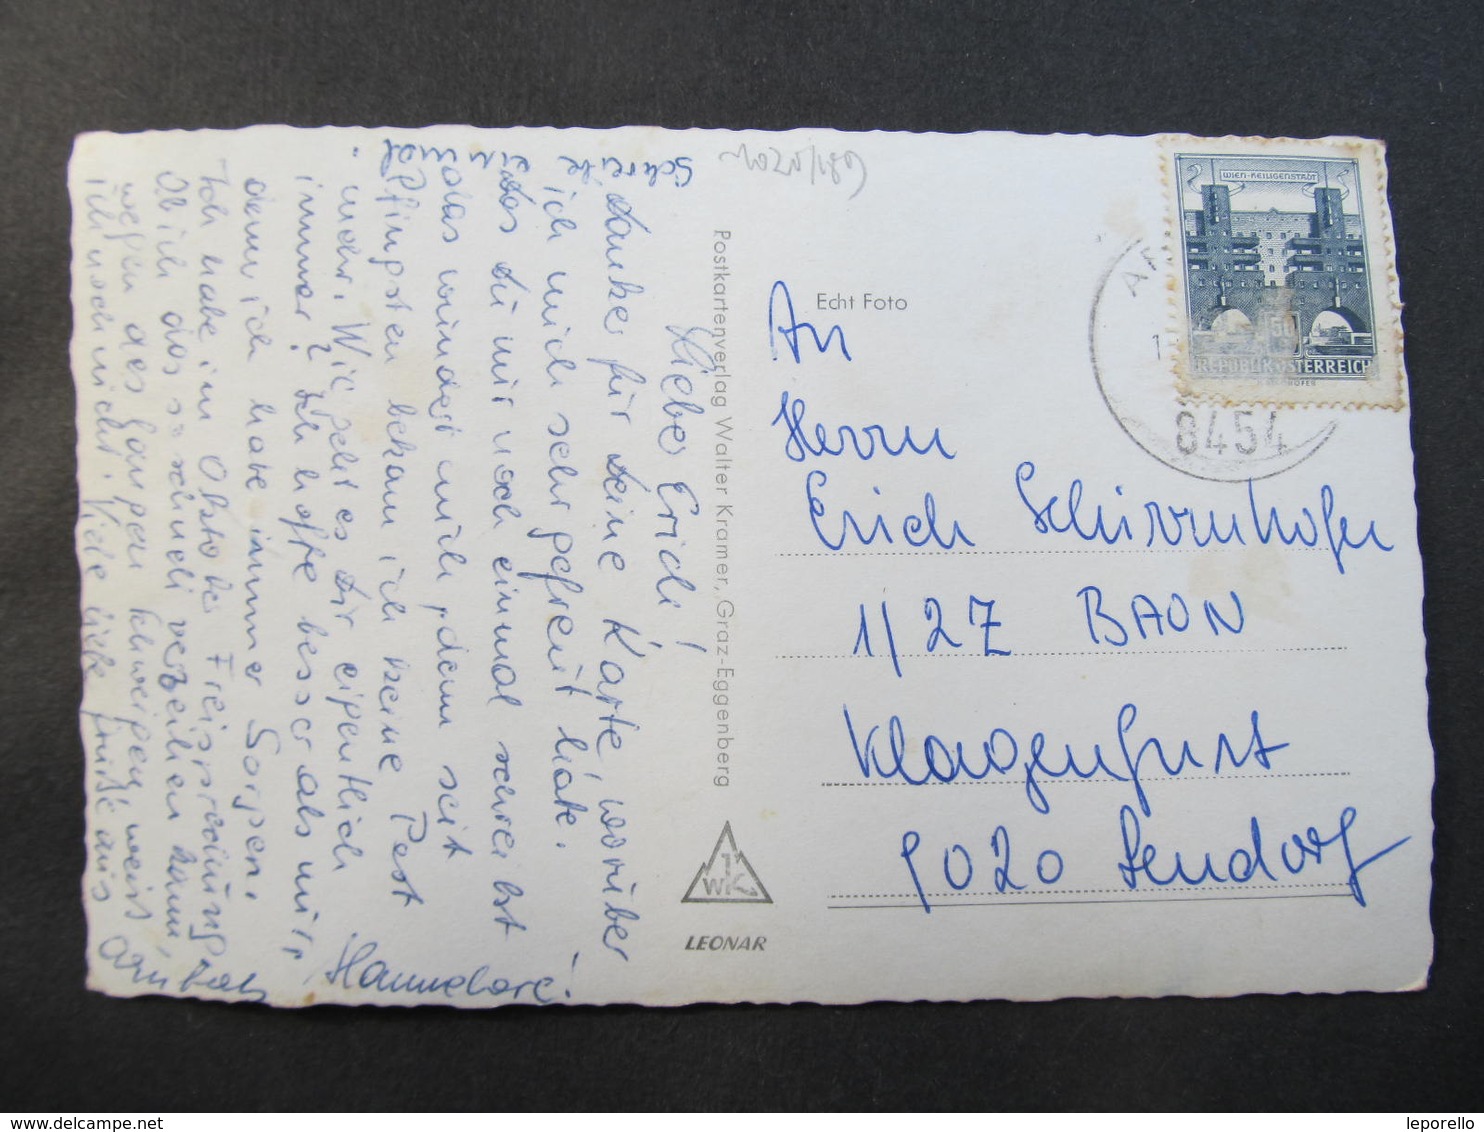 Lieber Erich!
Danke für Deine Karte, worüber
ich mich sehr gefreut habe.
Das Du mir noch einmal schreibst
das wundert mich, denn seit
Pfingsten bekam ich keine Post
mehr. Wie geht es Dir eigentlich
immer? Ich hoffe besser als mir,
denn ich habe immer Sorgen.
Ich habe im Oktober Freisprechung
Ob ich das schnell verzeihen kann,
wegen des langen Schweigen, weiss
ich noch nicht. Viele liebe Grüße aus
Hannelore!
Schreibe
Postkartenverlag Walter Kramer, Graz-Eggenberg
WK
LEONAR
Echt Foto
WIEN-HEILIGENSTADT
50
REPUBLIK ÖSTERREICH
8454
An
Herrn
Erich Schirrnhofer
1/27 BAON
Klagenfurt
9020 Lendorf
leporello